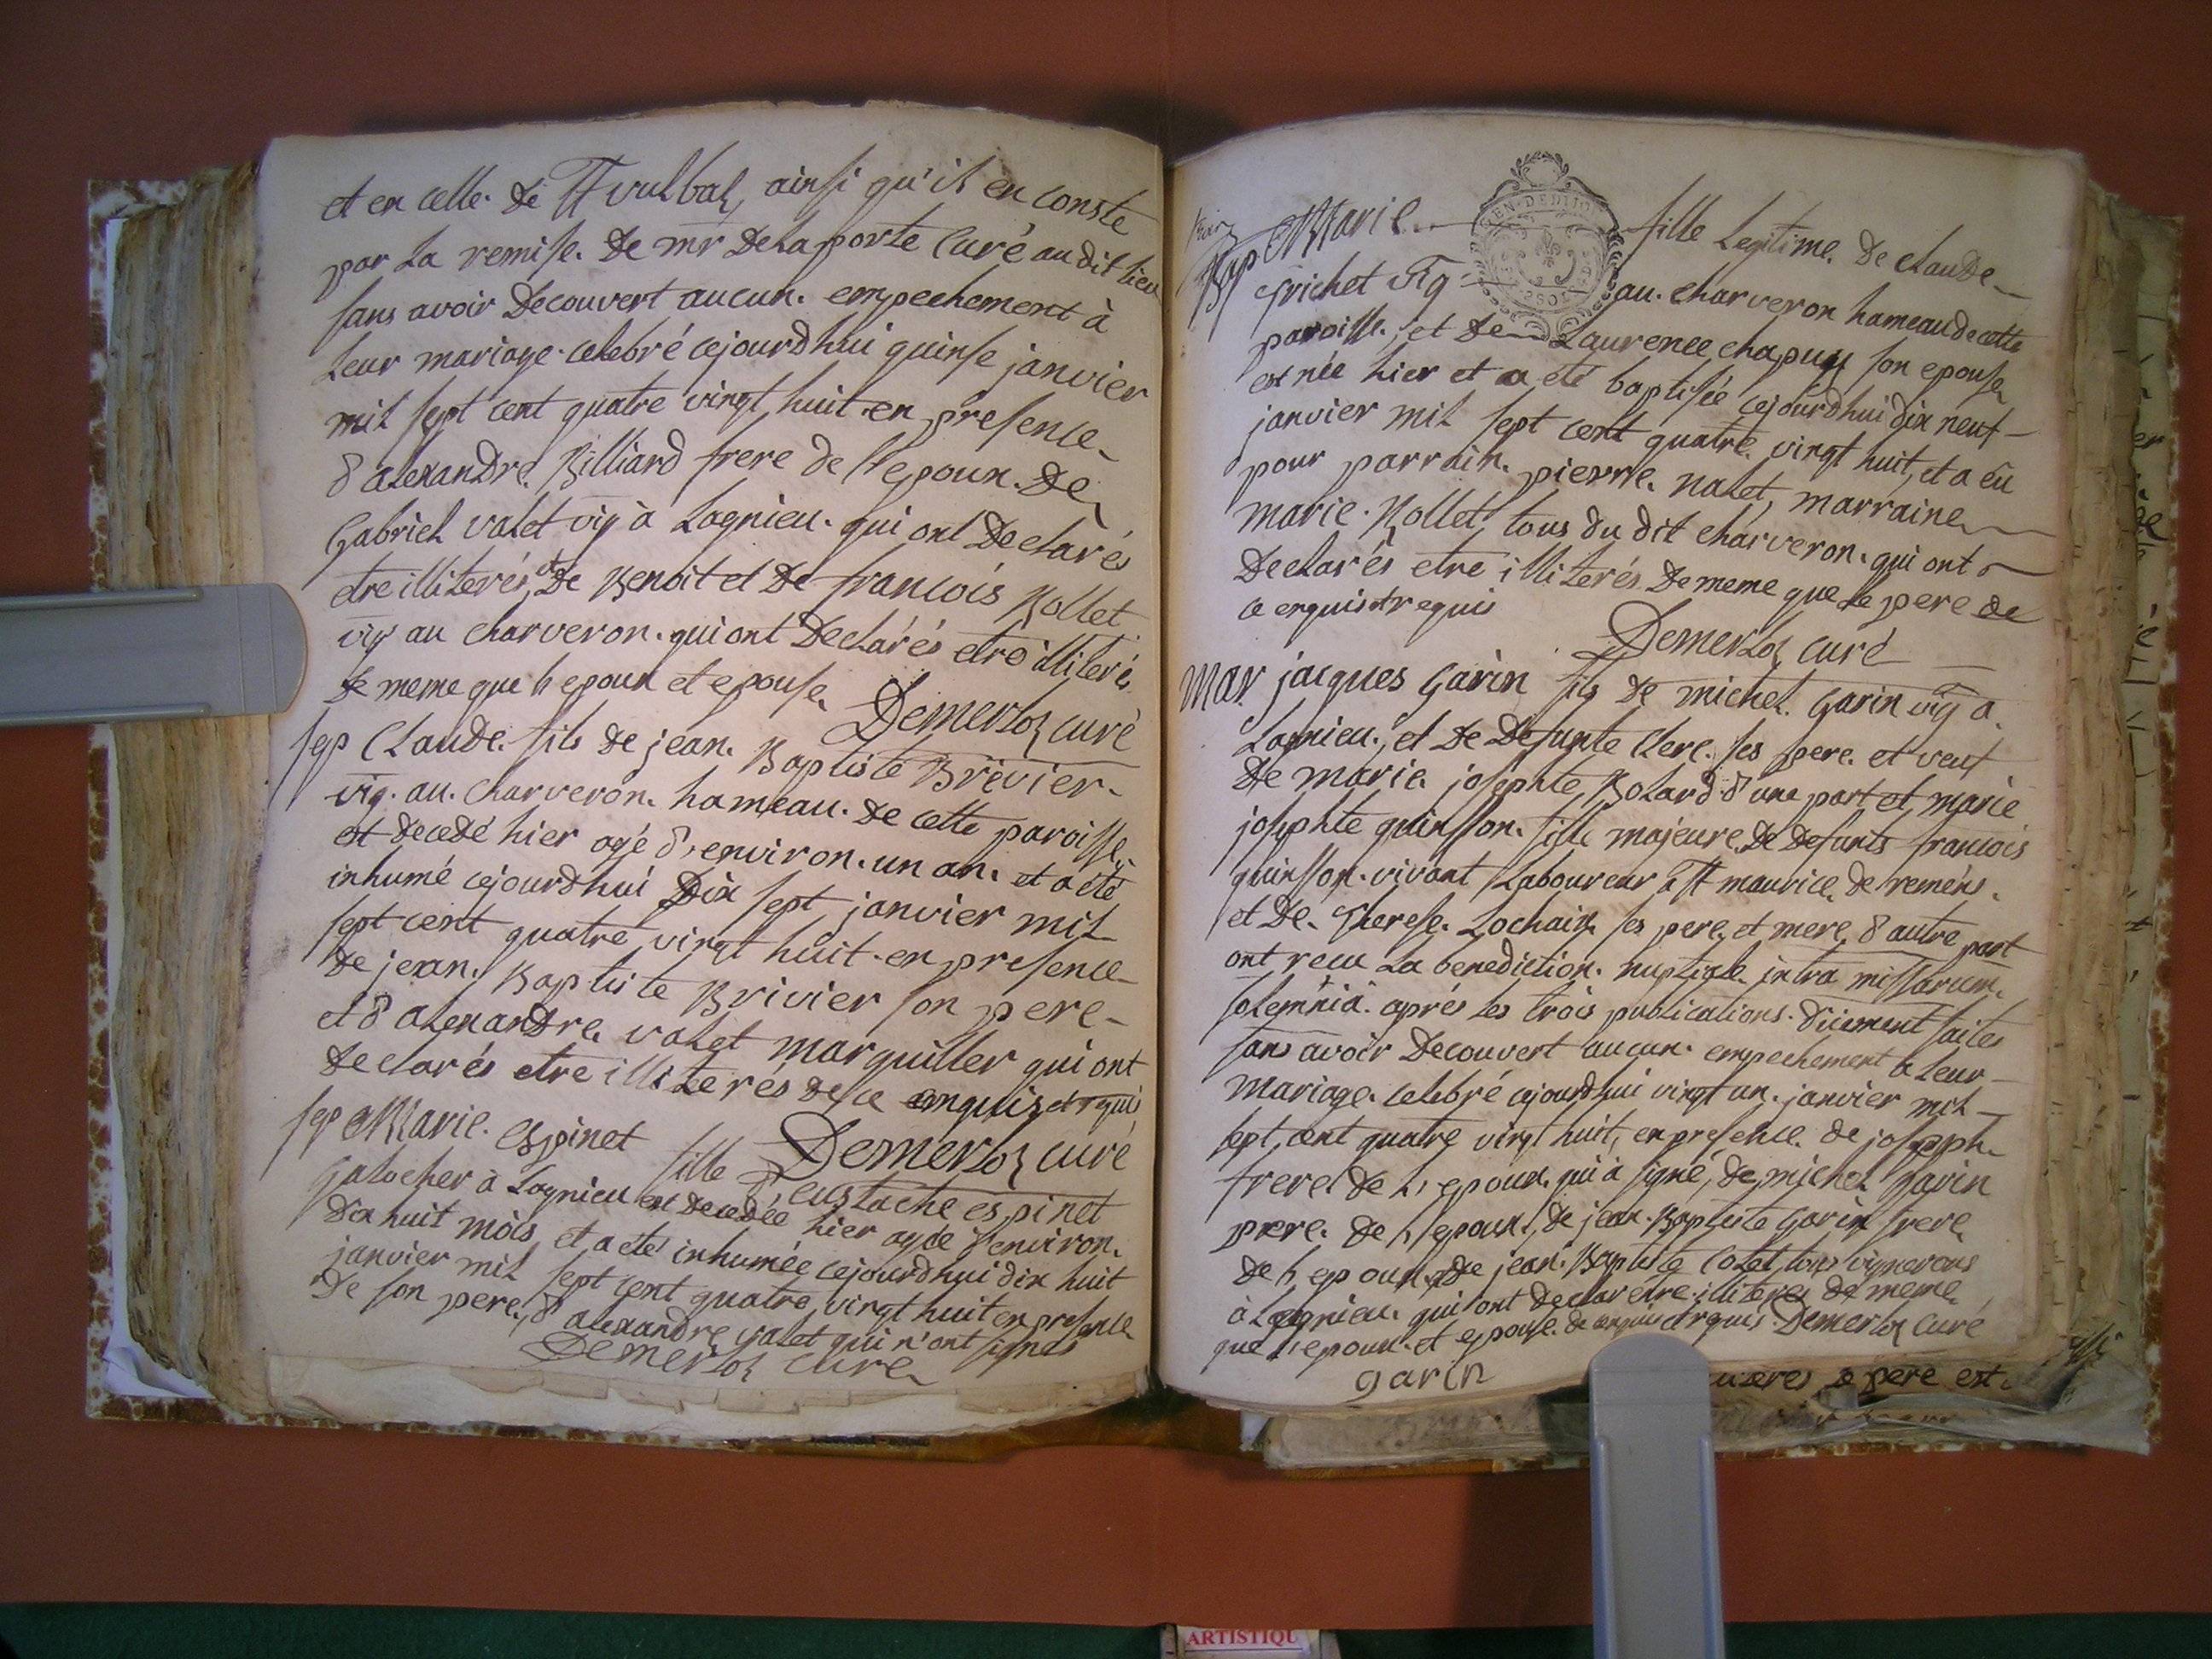 et en celle. de St vulbas, ainsi qu'il en conste
par La remise. De mr Delaporte Curé au dit lieu
sans avoir Decouvert aucun. empechement à
Leur mariage. celebré cejourdhui quinse janvier
mil sept cent quatre vingt huit. en presence
d'alexandre. Billiard frere de l'epoux. De
Gabriel valet vig à Lagnieu. qui ont Declarés
etre illiterés, et De Benoit et De francois Rollet
vig au charveron. qui ont Declarés etre illiterés
de meme que l'epoux et epouse. Demerloz curé
sep Claude. fils de jean. Baptiste Brivier.
vig. au. Charveron. hameau. de cette paroisse,
est decedé hier agé d'environ. un an. et a été
inhumé cejourdhui Dix sept janvier mil
sept cent quatre vingt huit. en presence
de jean. Baptiste Brivier son pere
et d'alexandre. valet marguiller qui ont
declarés etre illiterés de ce enquis et requis
Demerloz curé
sep Marie. espinet fille d'eustache espinet
galocher à Lagnieu est decedée hier agée d'environ.
dix huit mois, et a été inhumée cejourdhui dix huit
janvier mil sept cent quatre vingt huit en presence
de son pere, d'alexandre valet qui n'ont signés
Demerloz curé
Bap Marie fille Legitime. De claude
frichet vig au. charveron hameau de cette
paroisse, et de Laurence chapuy son epouse
est née hier et a été baptisée cejourdhui dix neuf
janvier mil sept cent quatre vingt huit, et a eu
pour parrain. pierre. valet, marraine
marie. Rollet, tous du dit charveron. qui ont
Declarés etre illiterés. De meme que le pere de
ce enquis et requis
Demerloz curé
Mar. jacques Garin fils de michel. Garin vig à.
Lagnieu. et De Defunte Clere. ses pere. et veuf
De marie. josephte Bolard. d'une part et, marie
josephte quinsson. fille majeure. De Defunts francois
quinsson. vivant Laboureur à St maurice. de remens.
et De. therese. Lochain ses pere, et mere d'autre part
ont recu La benediction. nuptiale. intra missarum.
solemnia. aprés les trois publications. düement faites
sans avoir Decouvert aucun. empechement à Leur
mariage. celebré cejourdhui vingt un. janvier mil
sept, cent quatre vingt huit, en presence. de joseph
frere de l'epoux. qui à signé, de michel Garin
pere. De l'epoux, de jean. Baptiste Garin frere
de l'epoux, de jean. Baptiste Colet, tous vignerons
à Lagnieu. qui ont declar etre illiteres de meme
que l'epoux. et epouse. de enquis et requis. Demerloz curé
garin
pere est
ARTISTIQU